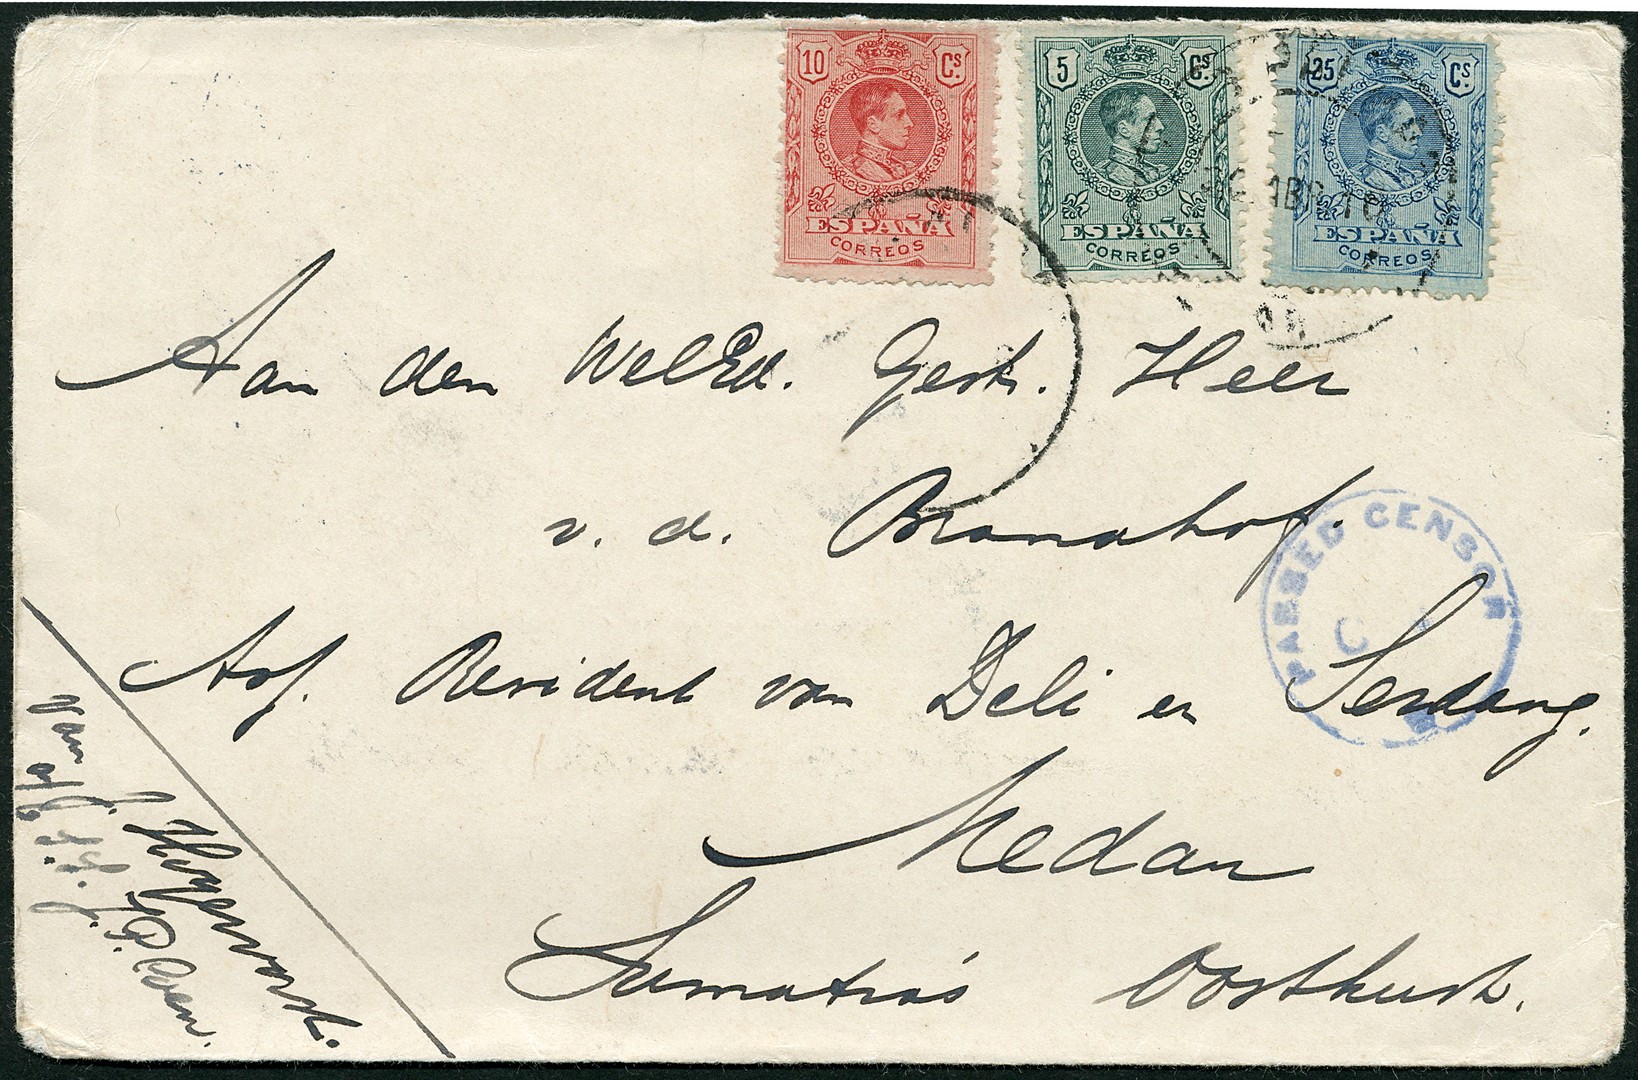 10 Cs.
ESPAÑA
CORREOS
5 Cs.
ESPAÑA
CORREOS
25 Cs.
ESPAÑA
CORREOS
ABR
Aan den WelEd. Gestr. Heer
v. d. Brandhof.
PASSED CENSOR
Ass. Resident van Deli en Serdang.
Medan
Sumatra's Oostkust.
van
J. Hogervorst.
a/b
J. P. Coen.